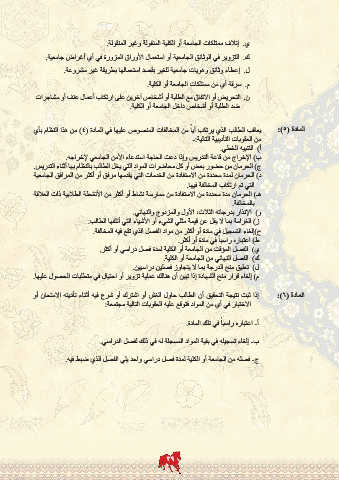 ي. إتلاف ممتلكات الجامعة أو الكلية المنقولة وغير المنقولة.
ك. التزوير في الوثائق الجامعية أو استعمال الأوراق المزورة في أي أغراض جامعية.
ل. إعطاء وثائق وهويات جامعية للغير بقصد استعمالها بطريقة غير مشروعة.
م. سرقة أي من ممتلكات الجامعة أو الكلية.
ن. التحريض أو الاتفاق مع الطلبة أو أشخاص آخرين على ارتكاب أعمال عنف أو مشاجرات
ضد الطلبة أو أشخاص داخل الجامعة أو الكلية.
المادة (٥): يعاقب الطالب الذي يرتكب أياً من المخالفات المنصوص عليها في المادة (٤) من هذا النظام بأي
من العقوبات التأديبية التالية:.
أ) التنبيه الخطي.
ب) الإخراج من قاعة التدريس وإذا دعت الحاجة استدعاء الأمن الجامعي لإخراجه.
ج) الحرمان من حضور بعض أو كل محاضرات المواد التي يخل الطالب بالنظام بها أثناء التدريس.
د) الحرمان لمدة محددة من الاستفادة من الخدمات التي يقدمها مرفق أو أكثر من المرافق الجامعية
التي تم ارتكاب المخالفة فيها.
هـ) الحرمان مدة محددة من الاستفادة من ممارسة نشاط أو أكثر من الأنشطة الطلابية ذات العلاقة
بالمخالفة.
و) الإنذار بدرجاته الثلاث: الأول والمزدوج والنهائي.
ز) الغرامة بما لا يقل عن قيمة مثلي الشيء أو الأشياء التي أتلفها الطالب.
ح) إلغاء التسجيل في مادة أو أكثر من مواد الفصل الذي تقع فيه المخالفة.
ط) اعتباره راسباً في مادة أو أكثر.
ي) الفصل المؤقت من الجامعة أو الكلية لمدة فصل دراسي أو أكثر.
ك) الفصل النهائي من الجامعة أو الكلية.
ل) تعليق منح الدرجة بما لا يتجاوز فصلين دراسيين.
م) إلغاء قرار منح الشهادة إذا تبين أن هنالك عملية تزوير أو احتيال في متطلبات الحصول عليها.
المادة (٦): إذا ثبت نتيجة التحقيق أن الطالب حاول الغش أو اشترك أو شرع فيه أثناء تأديته الامتحان أو
الاختبار في أي من المواد فتوقع عليه العقوبات التالية مجتمعة:
أ. اعتباره راسباً في تلك المادة.
ب. إلغاء تسجيله في بقية المواد المسجلة له في ذلك الفصل الدراسي.
ج. فصله من الجامعة أو الكلية لمدة فصل دراسي واحد يلي الفصل الذي ضبط فيه.